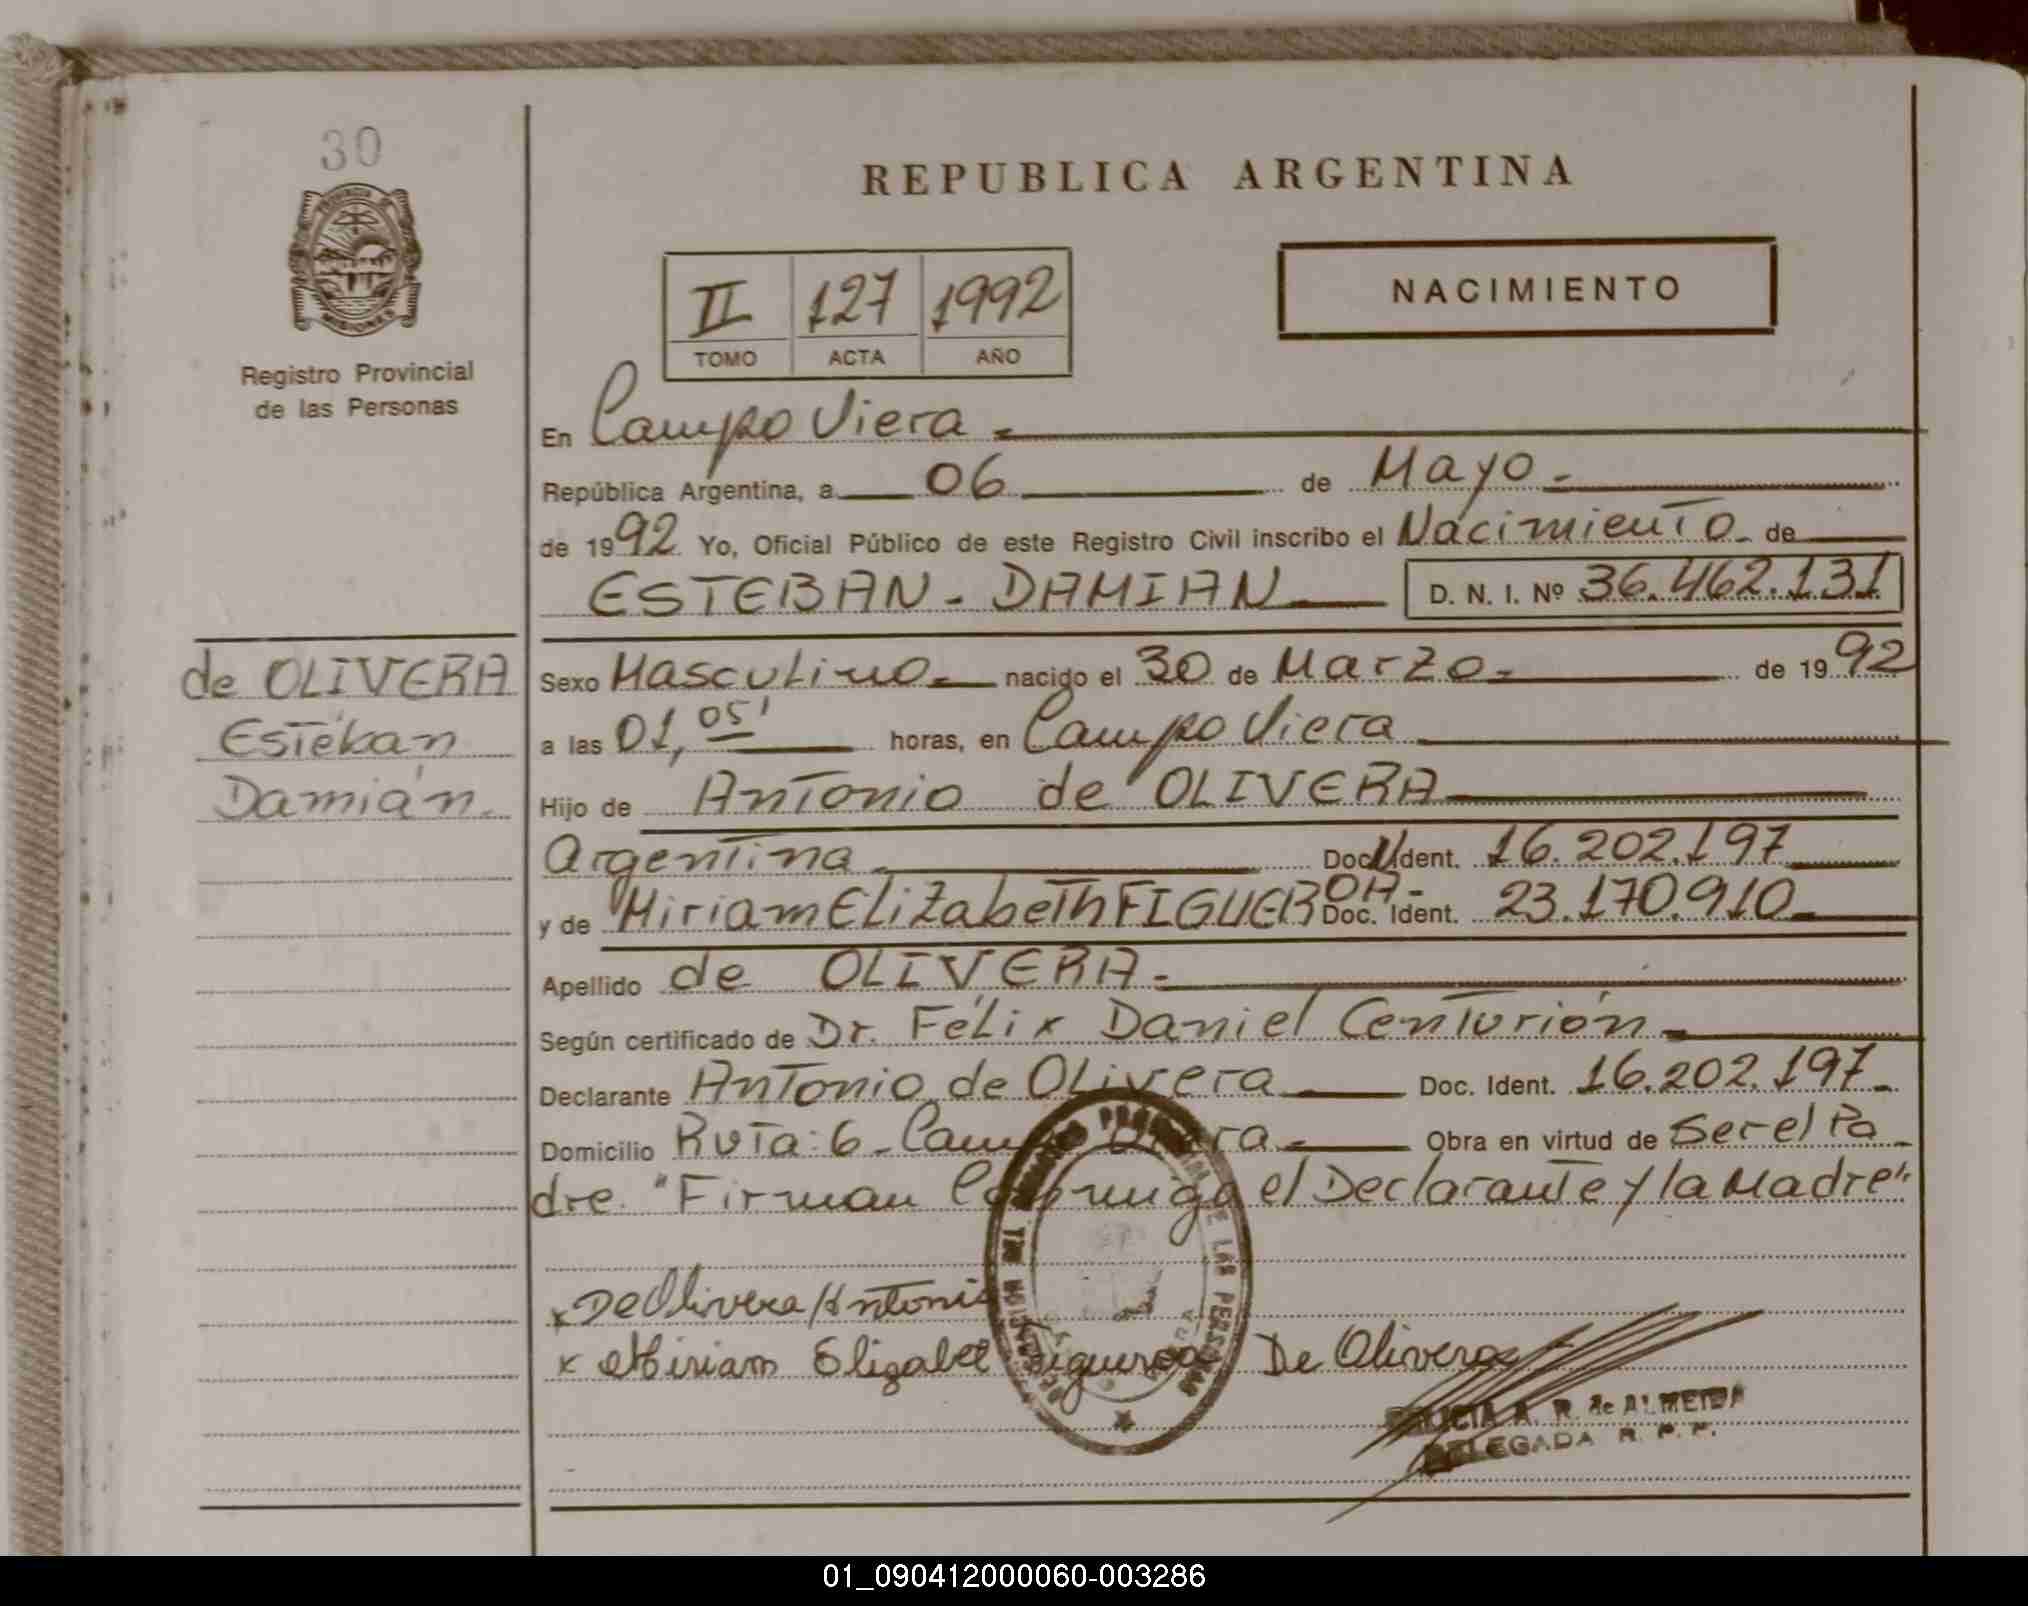 30
REPUBLICA ARGENTINA
NACIMIENTO
II 127 1992
TOMO ACTA AÑO
PROVINCIA DE
MISIONES
Registro Provincial
de las Personas
En Campo Viera.
República Argentina, a 06 de Mayo.
de 1992 Yo, Oficial Público de este Registro Civil inscribo el Nacimiento. de
ESTEBAN - DAMIAN D. N. I. Nº 36.462.131
de OLIVERA
Esteban
Damián.
Sexo Masculino. nacido el 30 de Marzo. de 1992
a las 01,05' horas, en Campo Viera
Hijo de Antonio de OLIVERA
Argentina. Doc. Ident. 16.202.197
y de Miriam Elizabeth FIGUEROA- Doc. Ident. 23.170.910.
Apellido de OLIVERA.
Según certificado de Dr. Félix Daniel Centurión.
Declarante Antonio de Olivera Doc. Ident. 16.202.197.
Domicilio Ruta: 6 - Campo Viera. Obra en virtud de Ser el Pa
dre. "Firman Conmigo el Declarante y la Madre"
x De Olivera Antonio
x Miriam Elizabet Figueroa De Olivera
DE LAS PERSONAS
A. R. de ALMEIDA
DELEGADA R. P. P.
01_090412000060-003286